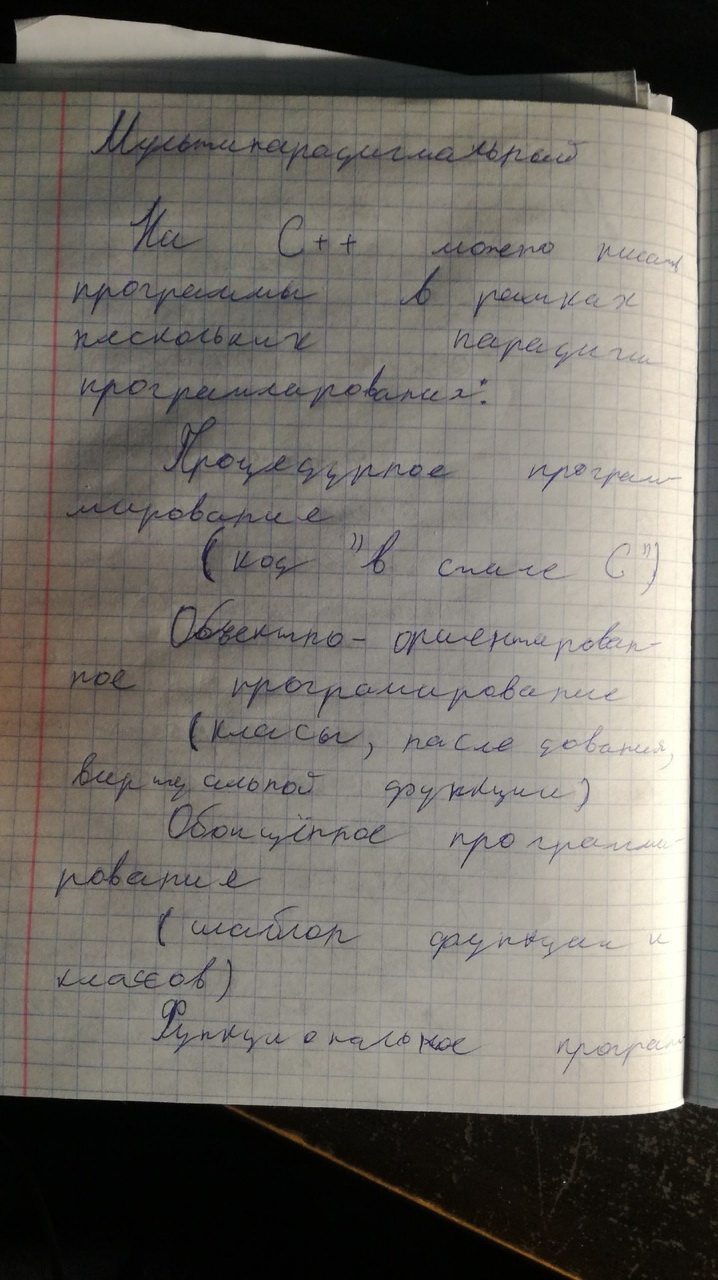 Мультипарадигмальный
На С++ можно писать
программы в рамках
нескольких парадигм
программирования:
Процедурное програм-
мирование
(код "в стиле С")
Объектно-ориентирован-
ное програмирование
(класы, наследования,
виртуальной функции)
Обощённое программи-
рования
(шаблон функции и
классов)
Функциональное програм